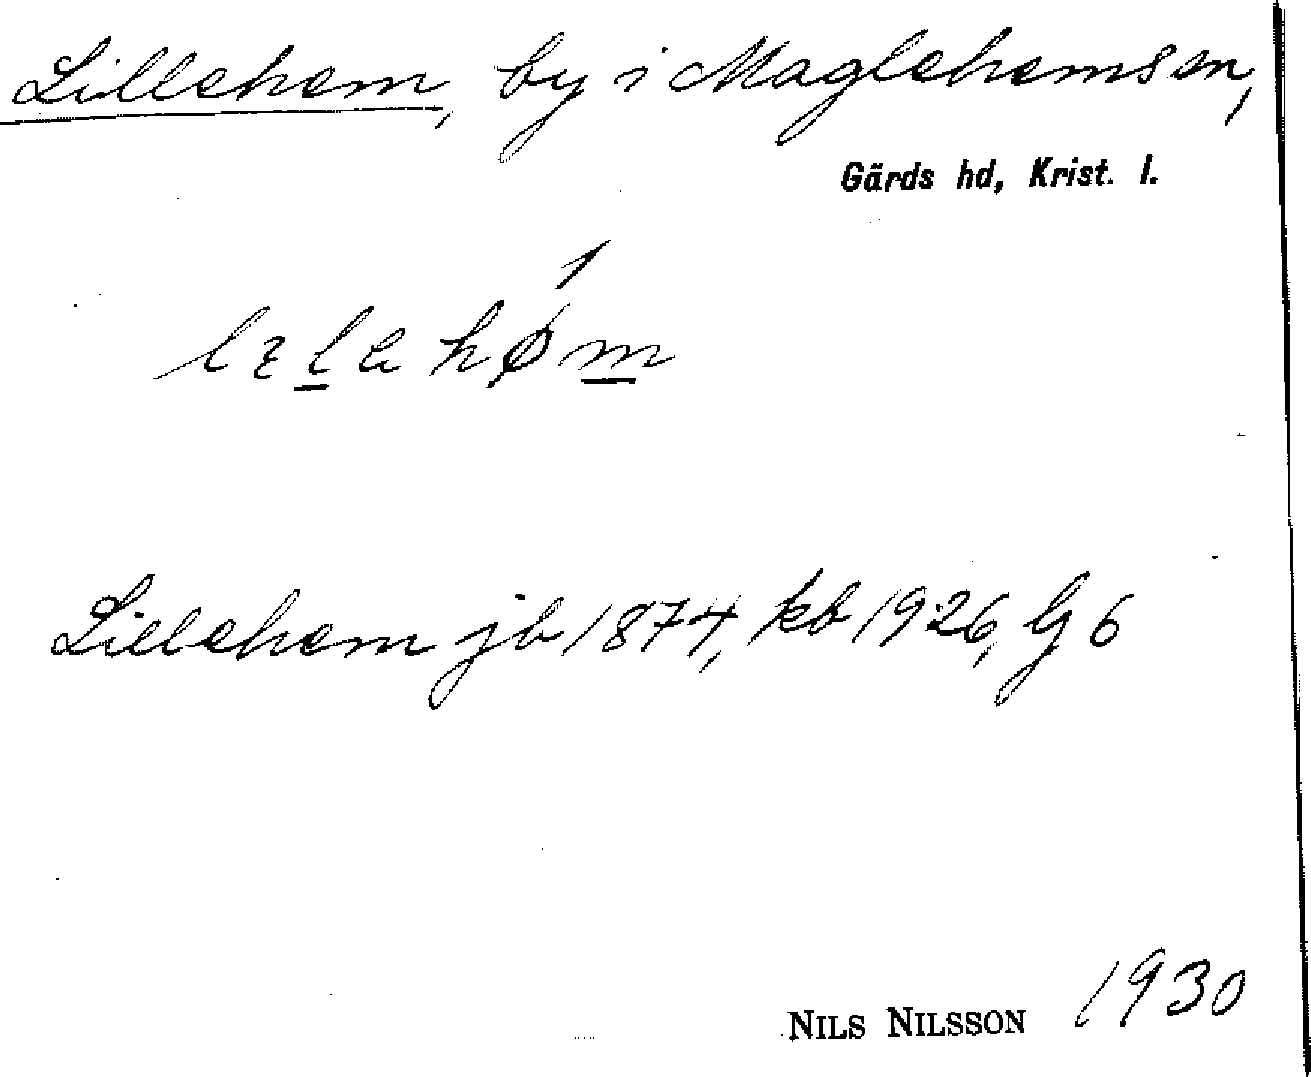 Lillehem, by i Maglehems sn,
Gärds hd, Krist. l.
Lillehem jb 1874, kb 1926, G 6
NILS NILSSON 1930